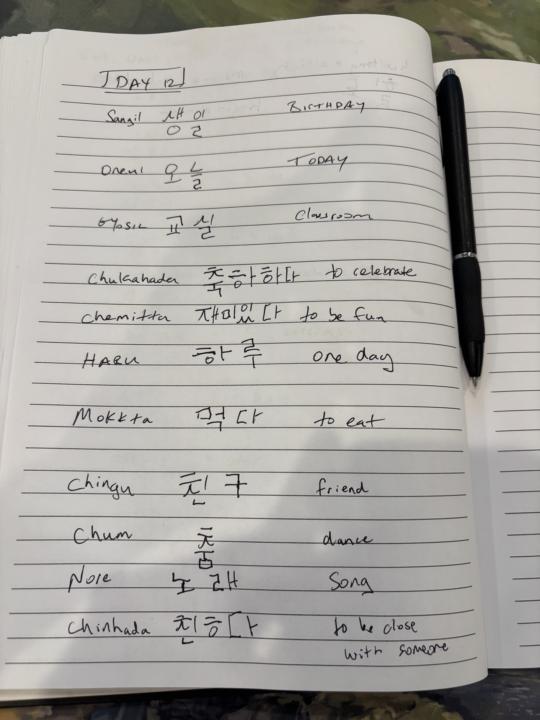 DAY 12
Sangil 생일 BIRTHDAY
Oneul 오늘 TODAY
Gyosil 교실 Classroom
Chukahada 축하하다 to celebrate
Chemitta 재미있다 to be fun
HARU 하루 one day
Mokkta 먹다 to eat
Chingu 친구 friend
Chum 춤 dance
Nore 노래 Song
Chinhada 친하다 to be close
with someone